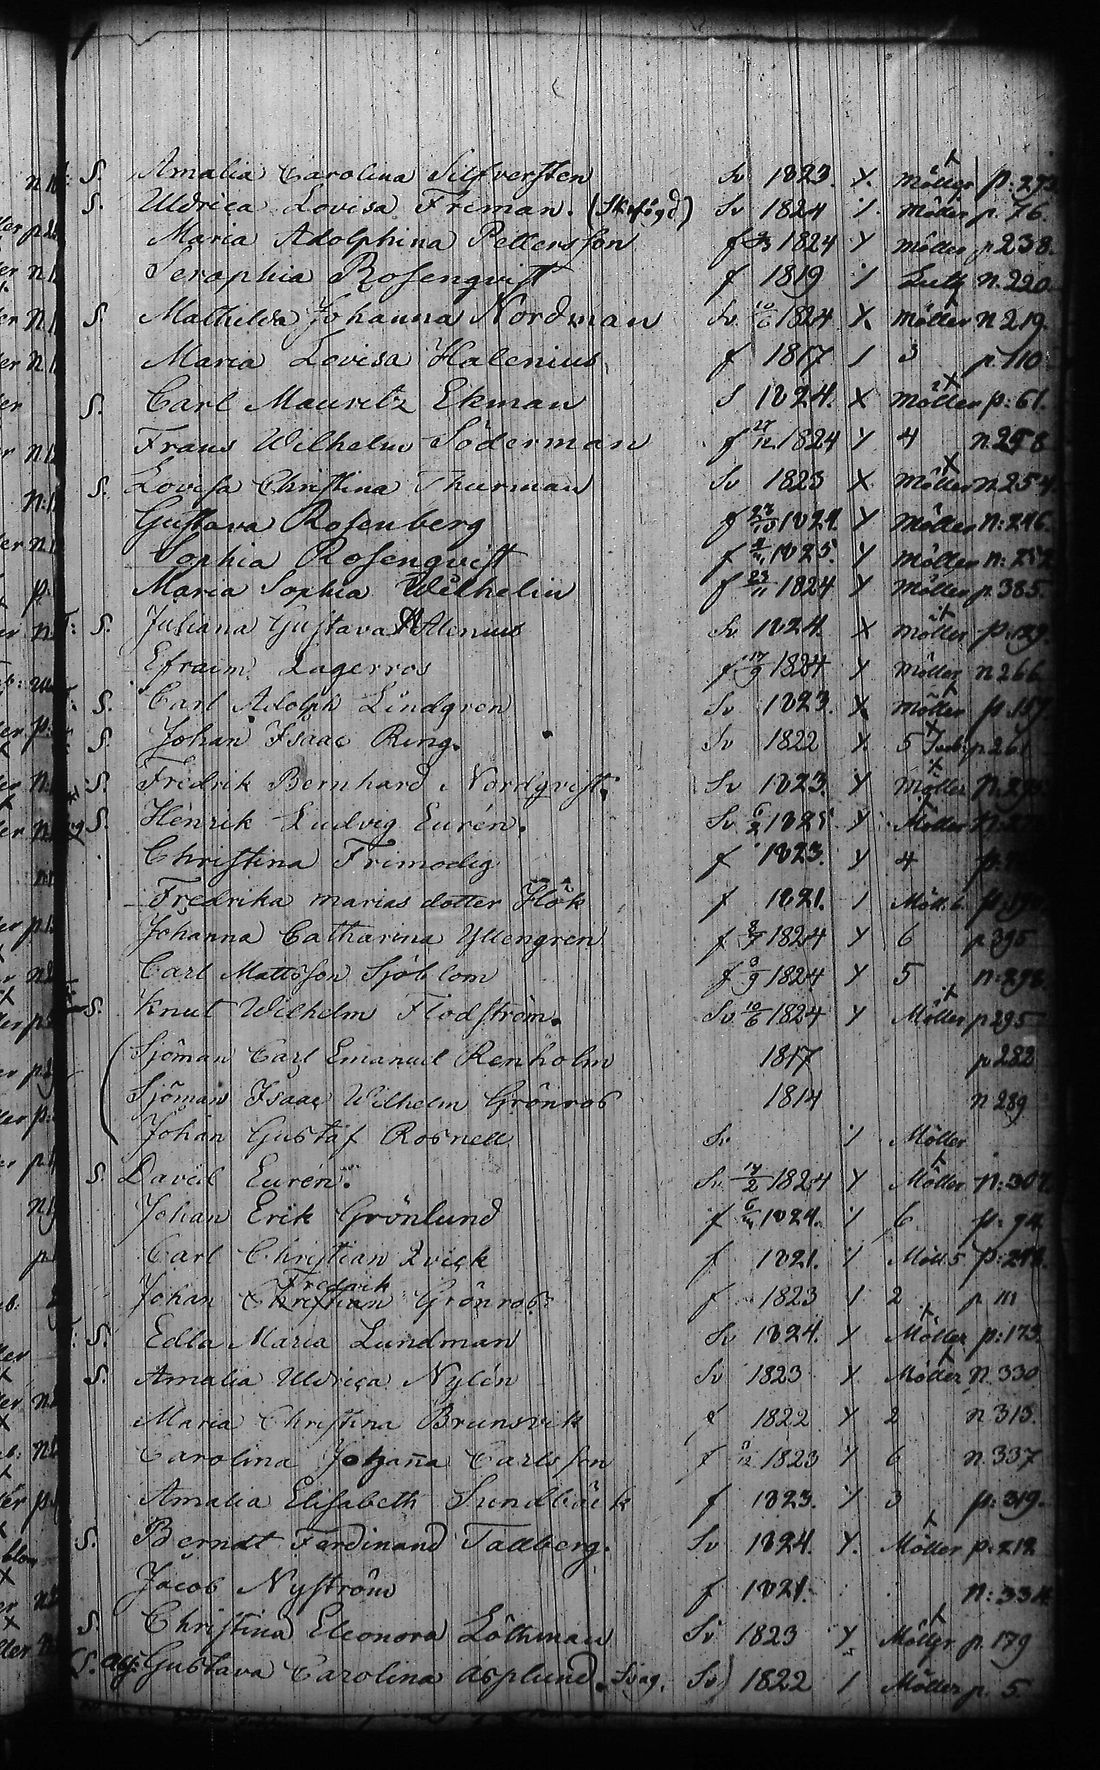 S. Amalia Carolina Silfversten Sv 1823. Y. Möller p. 292
S. Uldrica Lovisa Friman. Sv 1824 1. Möller p. 76.
Maria Adolphina Pettersson f 1824 Y Möller p 238.
Seraphia Rosenqvist f 1819 1 n. 220
S Mathilda Johanna Nordman Sv 10/6 1824 X Möller n 219.
Maria Lovisa Halenius f 1817 1 3 p. 110
S. Carl Mauritz Ekman S 1824. X Möller p: 61.
Frans Wilhelm Söderman f 27/12 1824 Y 4 n. 258
S. Lovisa Christina Thurman Sv 1823 X Möller n. 254
Gustava Rosenberg f 23/10 1824 Y Möller n: 246.
Sophia Rosenqvist f 1825. Y Möller n: 252
Maria Sophia Wilhelin f 23/11 1824 Y Möller p. 385.
S. Juliana Gustava Alenius Sv 1824. X Möller p. 129.
Efraim Lagerros f 17/9 1824 Y Möller n 266
S. Carl Adolph Lindgren Sv 1823. X Möller p. 157
S. Johan Isaac Ring. Sv 1822 Y. 5 p. 261
S. Fredrik Bernhard Nordqvist. Sv 1823. Y Möller n. 293
S. Henrik Ludvig Eurén. Sv 6/2 1825 Y Möller
Christina Frimodig f 1823. Y 4
Fredrika marias dotter Hök f 1821. 1 Möll. 6.
Johanna Catharina Yllengren f 1824 Y 6 p 395
Carl Mattsson Sjöblom f 3/9 1824 Y 5 n. 298
S. Knut Wilhelm Flodström. Sv 10/6 1824 Y Möller p 295
Sjöman Carl Emanuel Renholm 1817 p 282
Sjöman Isaac Wilhelm Grönros 1814 n 289
Johan Gustaf Rosnell Sv 1 Möller
S. David Eurén. Sv 17/2 1824 Y Möller n: 307
Johan Erik Grönlund f 1824. 1 6 p: 94
Carl Christian Qvick f 1821. 1 Möll. 5 p: 298
Fredrik
Johan Christian Grönros. f 1823 1 2 p 111
S. Edla Maria Lundman Sv 1824. Y Möller p: 173
S. Amalia Uldrica Nylén Sv 1823 Y Möller n. 330
Maria Christina Brunsvik f 1822 Y 2 n 313.
Carolina Johana Carlsson f 1823 Y 6 n. 337
Amalia Elisabeth Sundbäck f 1823. Y 3 p: 319.
S. Berndt Ferdinand Tallberg. Sv 1824. Y. Möller p: 212
Jacob Nyström f 1821. n: 334
S. Christina Eleonora Löthman Sv 1823 Y. Möller p. 179
S. Gustava Carolina Asplund. Sv 1822 1 Möller p. 5.